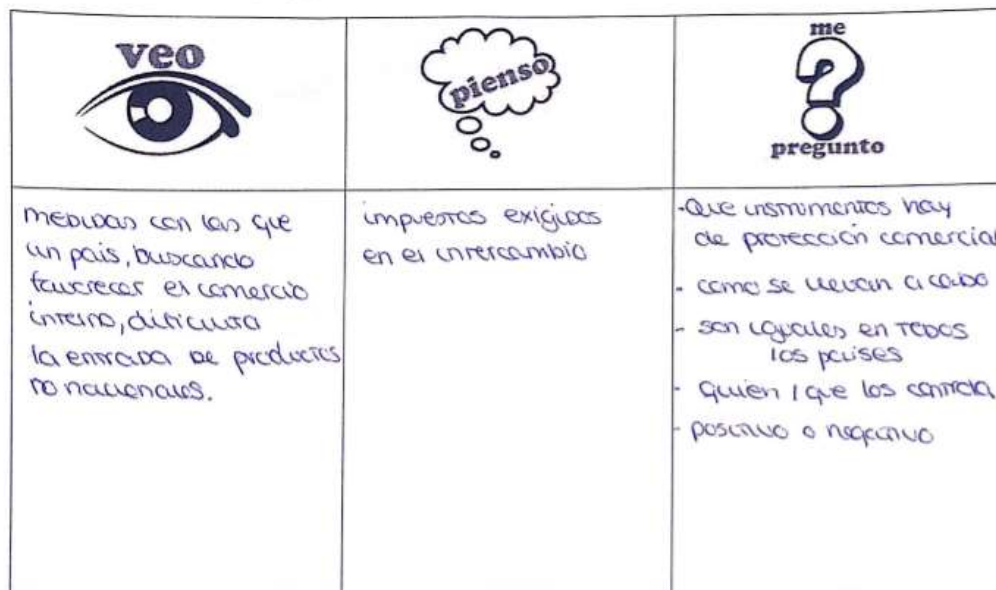 veo
pienso
me
?
pregunto
medidas con las que
un pais, buscando
favorecer el comercio
interno, dificulta
la entrada de productos
no nacionales.
impuestos exigidos
en el intercambio
-Que instrumentos hay
de protección comercial
- como se llevan a cabo
- son iguales en todos
los paises
- quien / que los controla
- positivo o negativo